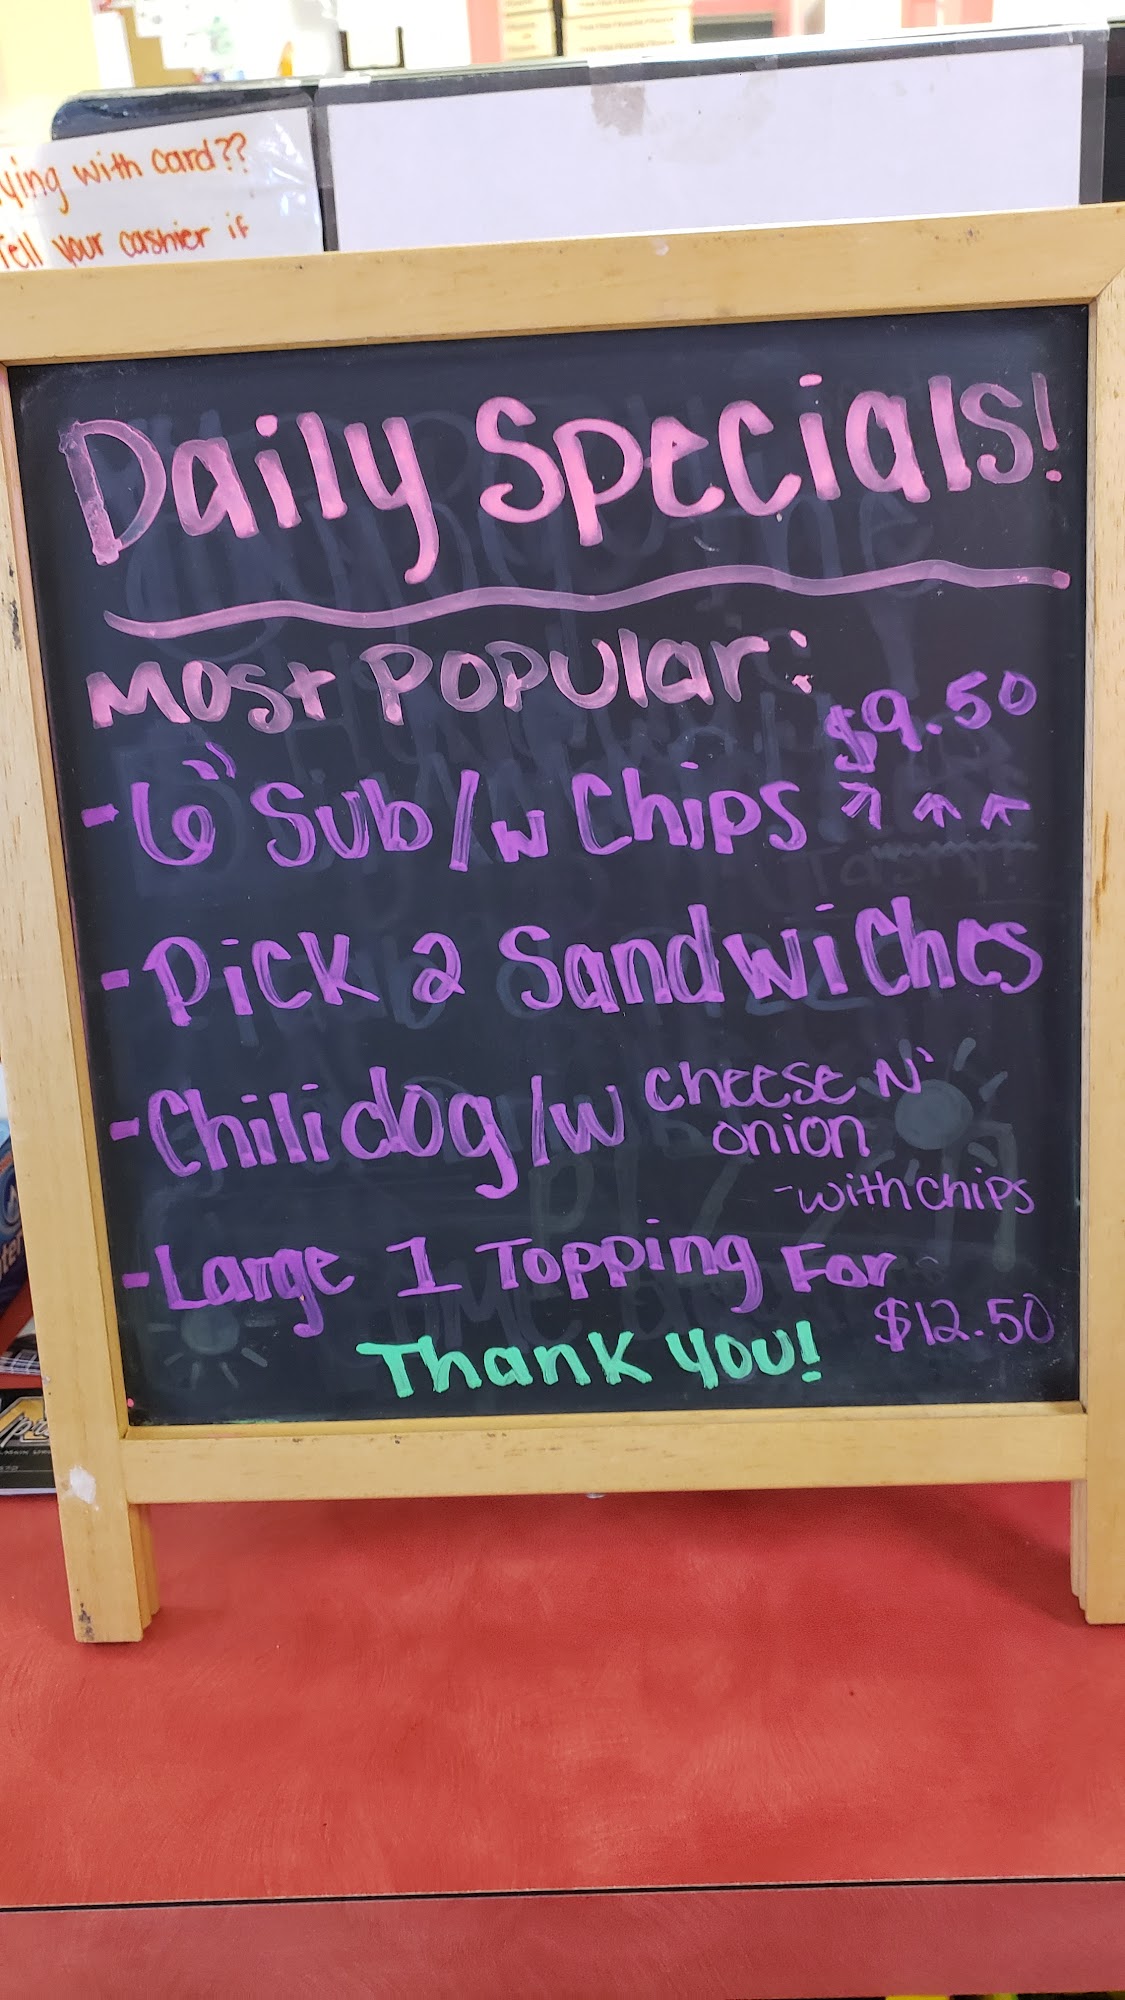 ying with card??
Tell your cashier if
Daily Specials!
Most Popular:
$9.50
- 6" Sub/w Chips
- Pick 2 Sandwiches
- Chili dog/w cheese N'
onion
- with chips
- Large 1 Topping For
$12.50
Thank you!